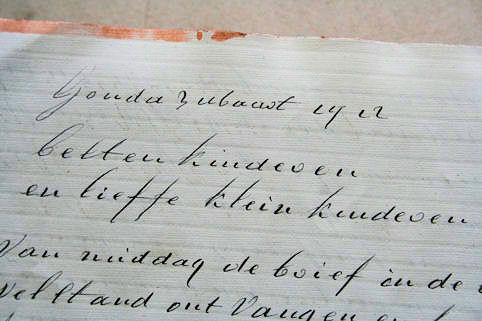 Gouda 3 Maart 19 12
besten kinderen
en lieffe klein kinderen
Van middag de brief in de
Welstand ont Vangen en